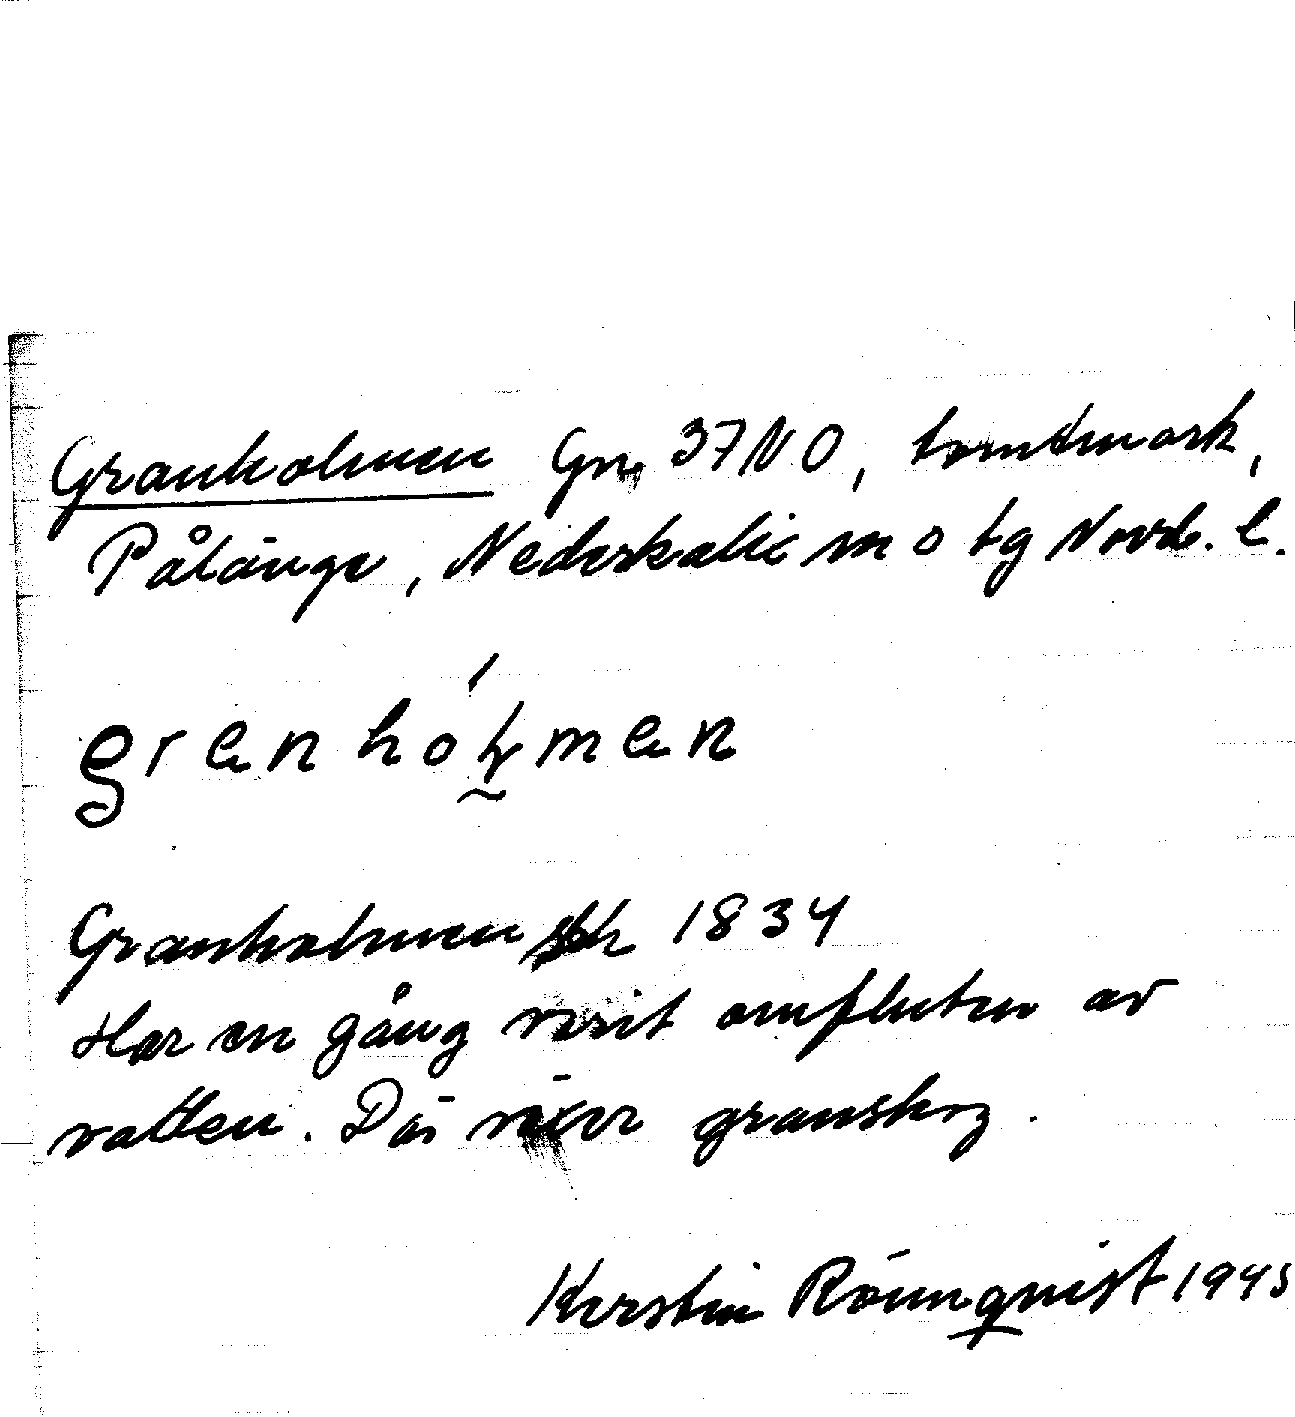 Granholmen Gm 37NO, tomtmark,
Pålänge, Nederkalix sn o tg Norrb. l.
granhólmen
Granholmen skh 1834
Har en gång varit omfluten av
vatten. Där växer granskog.
Kerstin Rönnqvist 1945